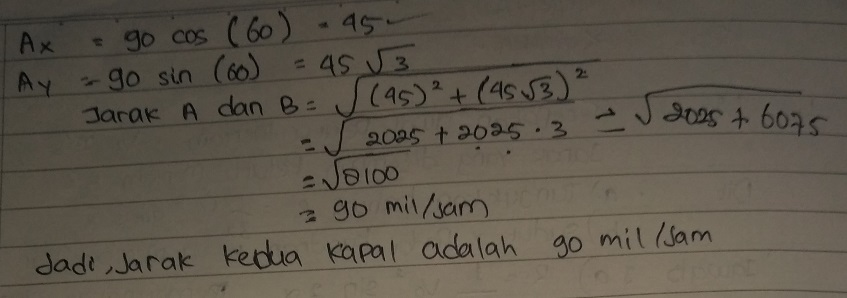 Ax = 90 cos (60) = 45
Ay = 90 sin (60) = 45 √3
Jarak A dan B = √(45)² + (45√3)²
= √2025 + 2025 . 3 = √2025 + 6075
= √8100
= 90 mil/Jam
Jadi, Jarak kedua kapal adalah 90 mil/Jam